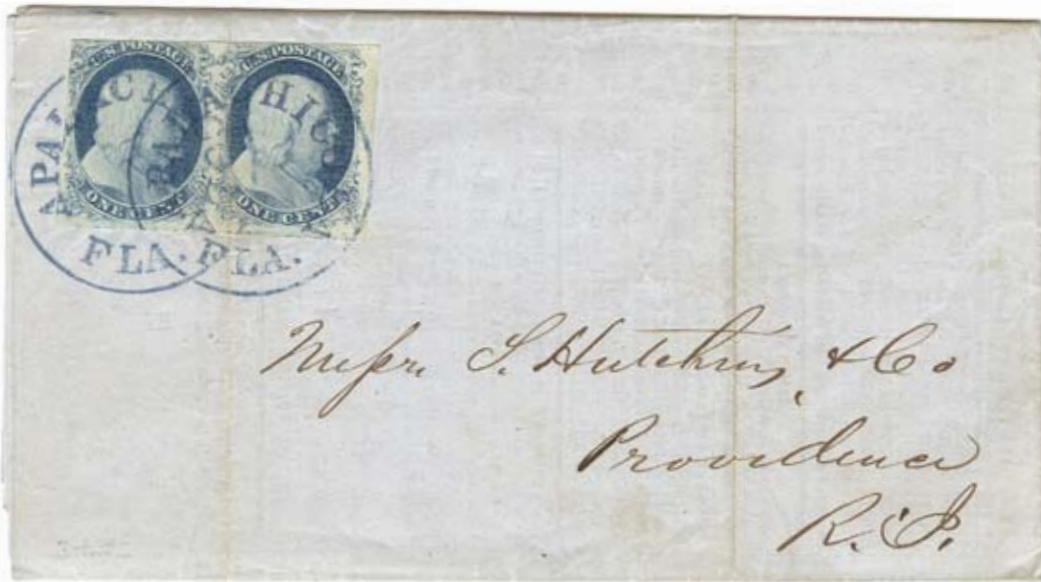 U.S. POSTAGE
ONE CENT
U.S. POSTAGE
ONE CENT
FLA.
FLA.
Messrs. S. Hutchins & Co
Providence
R.I.